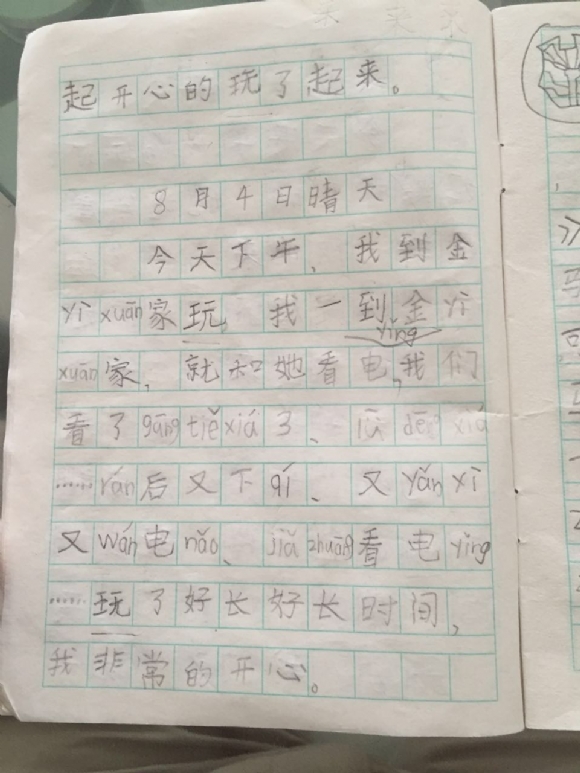 起开心的玩了起来。
8月4日晴天
今天下午、我到金
yì xuān家玩,我一到金yì
xuān家,就和她看电yǐng,我们
看了gāng tiě xiá 3、lǜ dēng xiá
……rán后又下qí、又yǎn xì
又wán电nǎo、jiǎ zhuāng看电yǐng
……玩了好长好长时间,
我非常的开心。